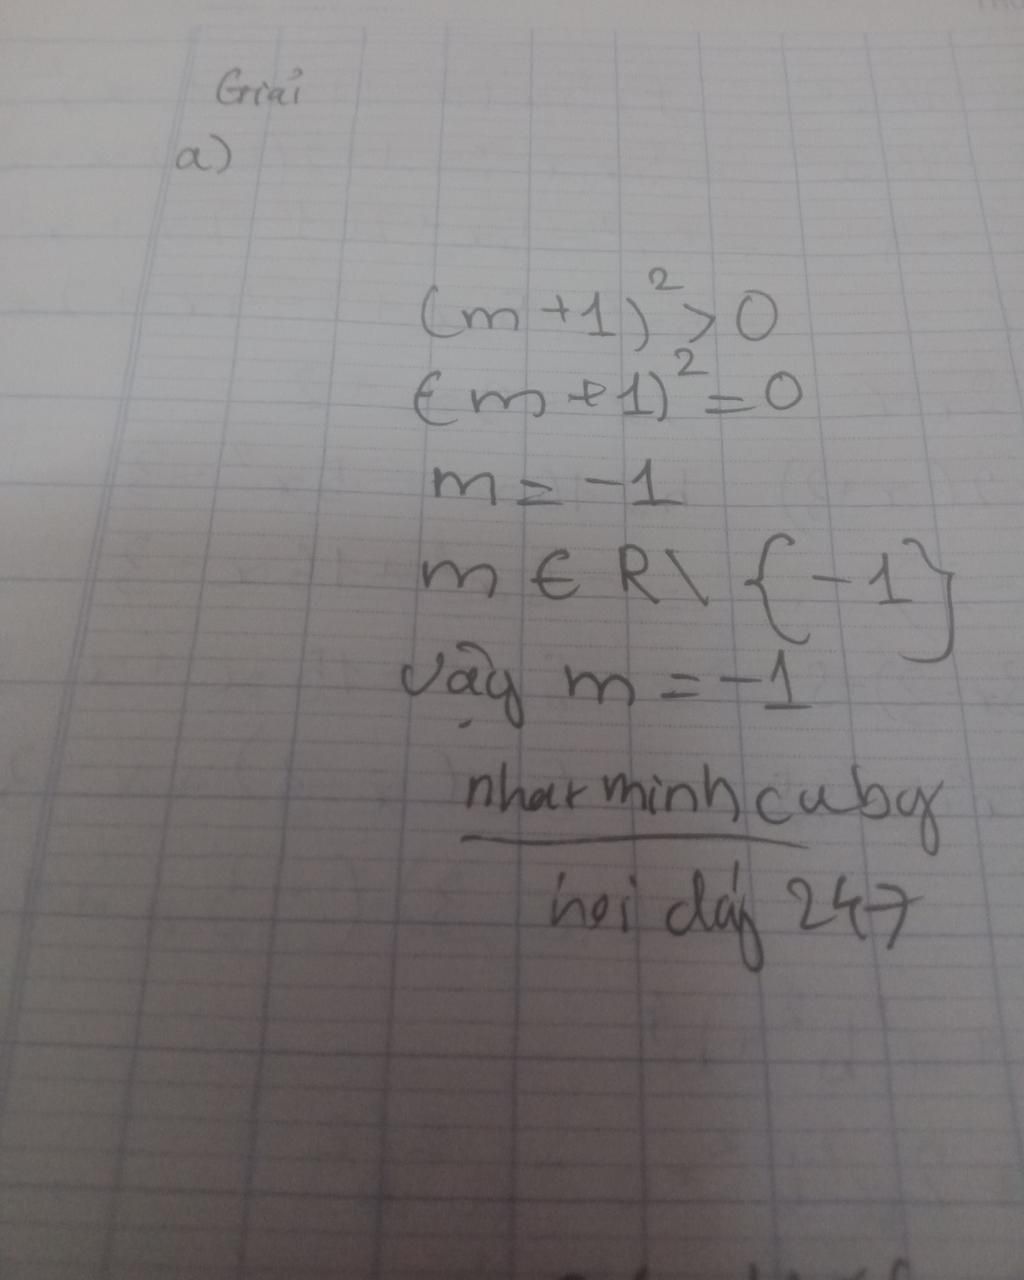 Giải
a)
(m+1)² > 0
(m+1)² = 0
m = -1
m ∈ R \ {-1}
vậy m = -1
nhat minh cuby
hoi đáp 247